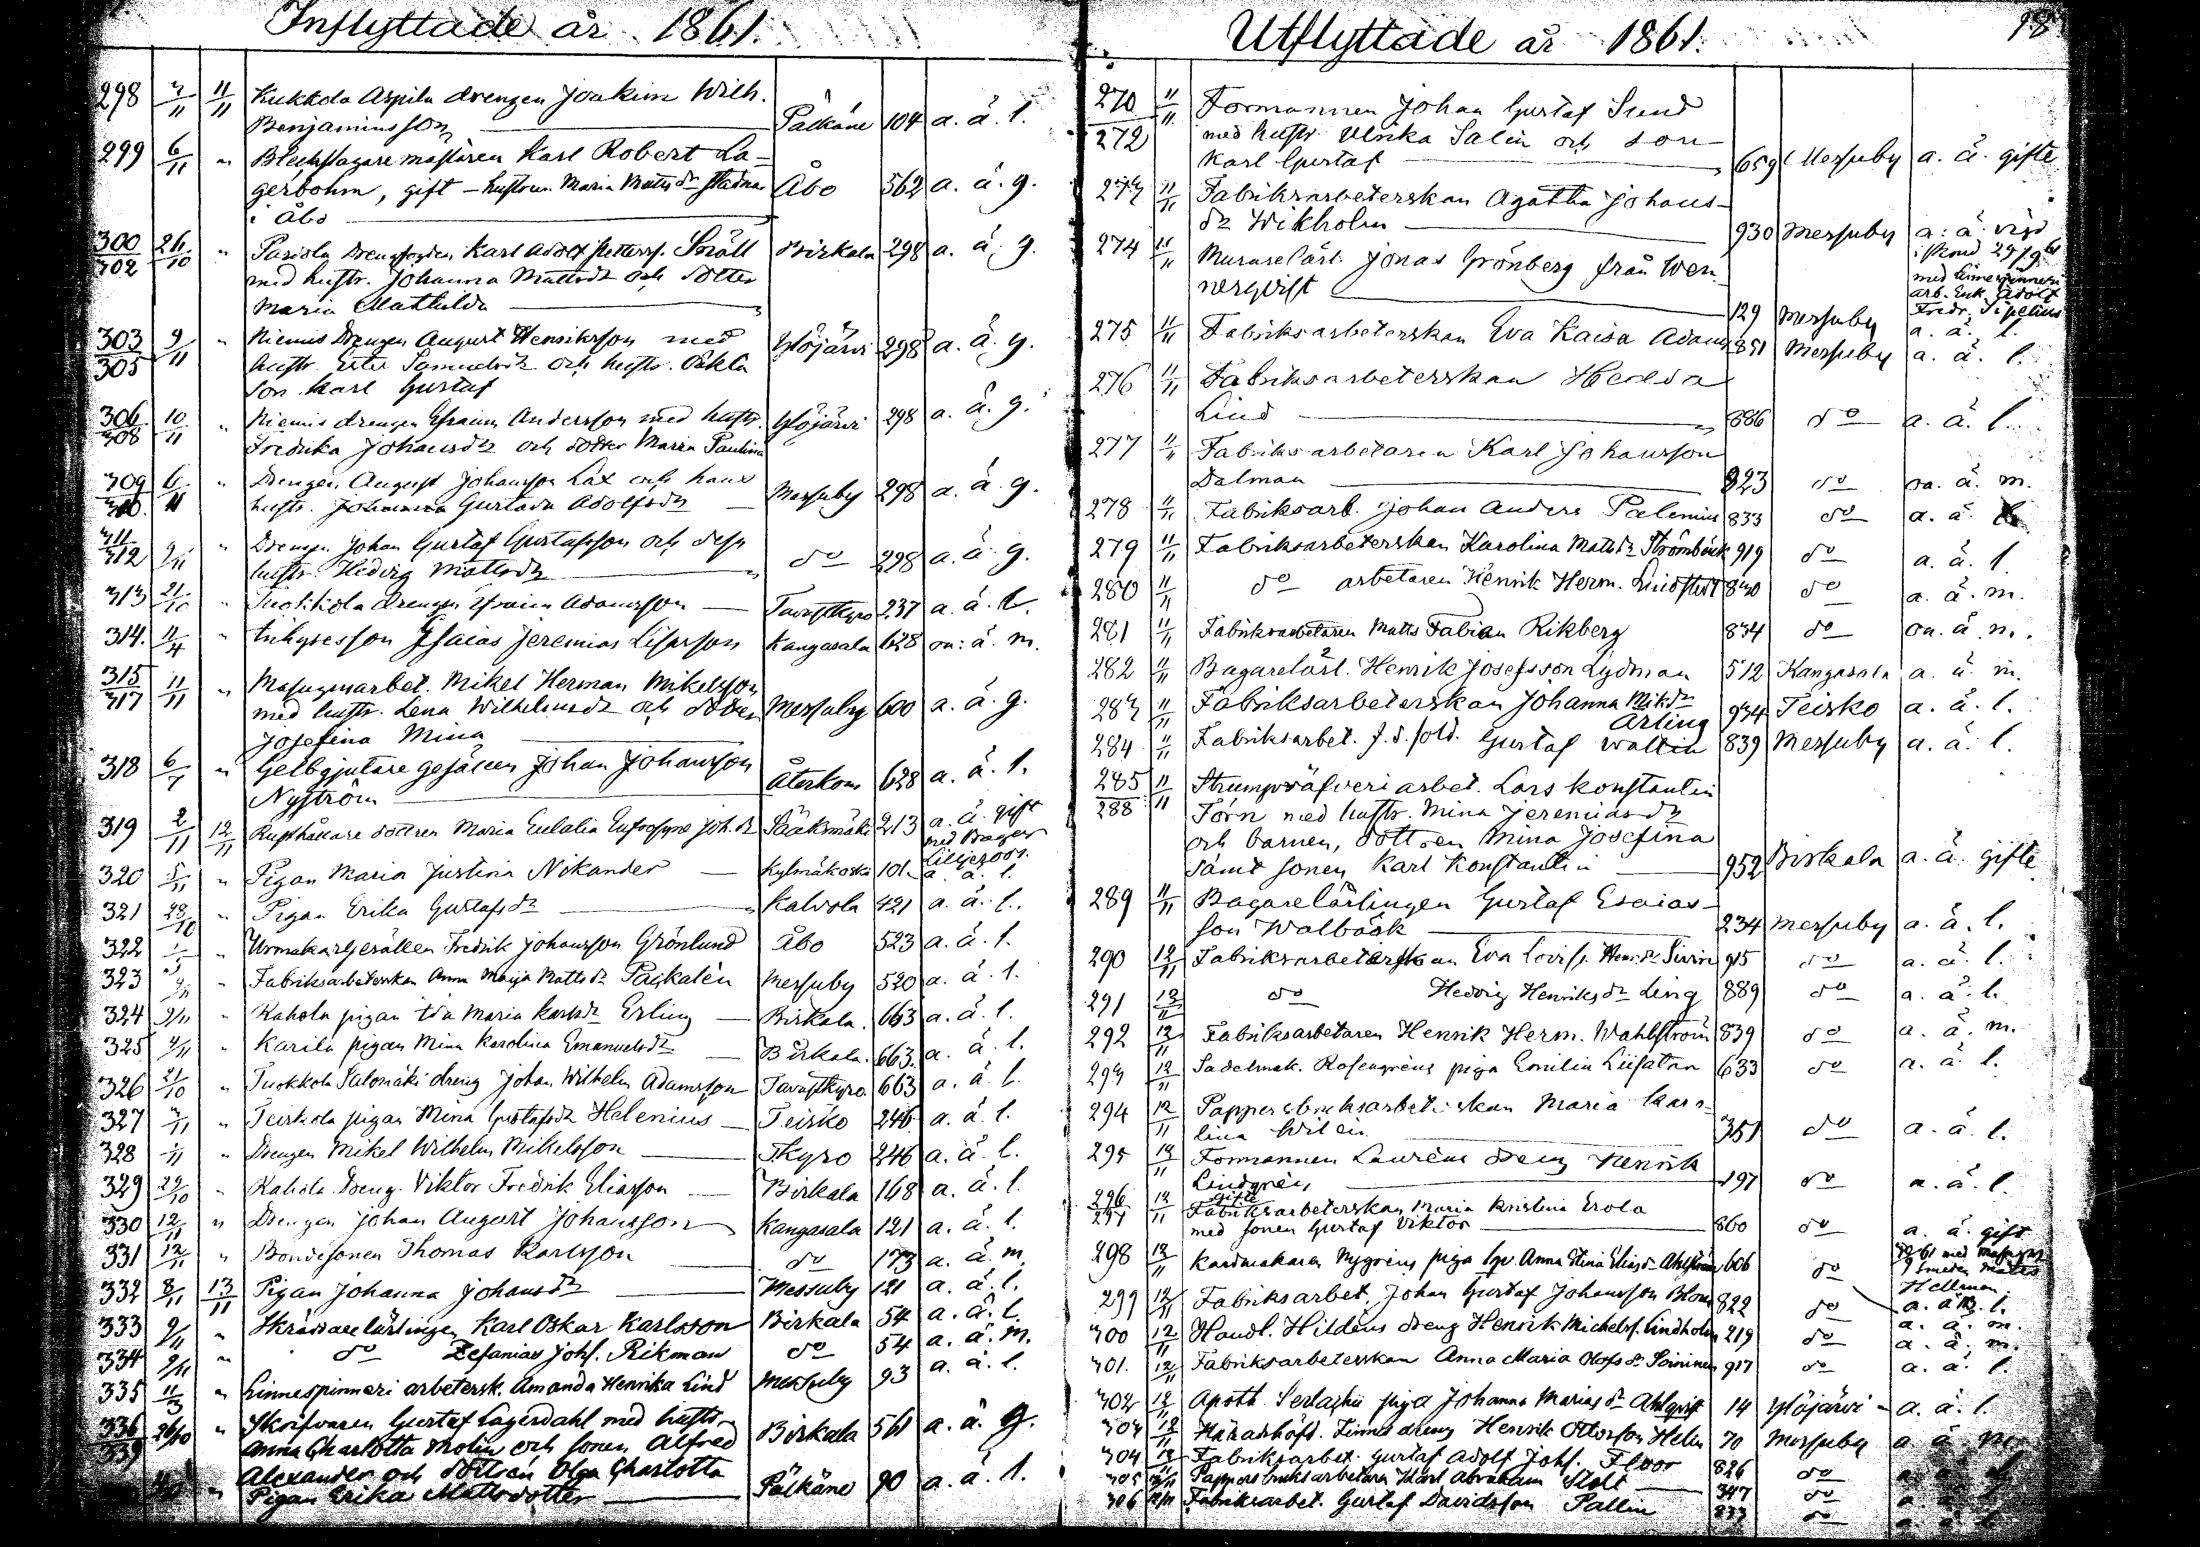 Inflyttade år 1861.
298 7/11 11/11 Kukkola Aspila drengen Joakim Wilh.
Benjaminsson Pälkäne 104 a. ä. l.
299 6/11 " Bleckslagare mästaren Karl Robert La-
gerbohm, gift - hustrun Maria Mattsdr stadnar Åbo 562 a. ä. g.
i Åbo
300 26/10 " Drengfogden Karl Adolf Småll Birkala 298 a. ä. g.
302 med hustr. Johanna Mattsdr och dotter
Maria Mathilda
303 9/11 " Niemis Drengen August Henriksson med Ylöjärvi 298 a. ä. g.
305 hustr. Samuelsdr och hustr. oäkta
son Karl Gustaf
306 10/11 " Niemis drengen Efraim Andersson med hustr. Ylöjärvi 298 a. ä. g.
308 Fredrika Johansdr och dotter Maria Paulina
309 6/11 " Drengen August Johansson Lax och hans Messuby 298 a. ä. g.
310 hustr. Gustava Adolfsdr
311 " Drengen Johan Gustaf Gustafsson och dess do 298 a. ä. g.
312 9/11 hustr. Hedvig Mattsdr
313 21/10 " drengen Efraim Adamsson Tavastkyro 237 a. ä. l.
314. 11/4 " Inhysesson Esaias Jeremias Kangasala 628 a. ä. m.
315 11/11 " Masugnsarbet. Mikel Herman Mikelsson
317 med hustr. Lena Wilhelmsdr och dotter Messuby 600 a. ä. g.
Josefina Mina
318 6/7 " Gelbgjutare gesällen Johan Johansson Återkom 628 a. ä. l.
Nyström
319 2/11 12/11 Rusthållare dottren Maria Eulalia Eufrosyne Joh.dr Sääksmäki 213 a. ä. gift
med Bagar
Liljeroos.
320 5/11 " Pigan Maria Justina Nikander Kylmäkoski 101 a. ä. l.
321 28/10 " Pigan Erika Gustafsdr Kalvola 421 a. ä. l.
322 " Urmakargesällen Fredrik Johansson Grönlund Åbo 523 a. ä. l.
323 " Fabriksarbeterskan Anna Maija Mattsdr Packalén Messuby 520 a. ä. l.
324 9/11 " Kahola pigan Ida Maria Karlsdr Erling Birkala. 663 a. ä. l.
325 9/11 " Karila pigan Mina Karolina Emanuelsdr Birkala. 663. a. ä. l.
326 21/10 " Tuokkola Salomäki dreng Johan Wilhelm Adamsson Tavastkyro. 663 a. ä. l.
327 7/11 " Teiskola pigan Mina Gustafsdr Helenius Teisko 246 a. ä. l.
328 " Drengen Mikel Wilhelm Mikelsson T.kyro 246 a. ä. l.
329 29/10 " Kahola Dreng. Viktor Fredrik Eliasson Birkala 148 a. ä. l.
330 12/11 " Drengen Johan August Johansson Kangasala 121 a. ä. l.
331 12/11 " Bondesonen Thomas Karlsson do 173 a. ä. m.
332 8/11 13/11 Pigan Johanna Johansdr Messuby 121 a. ä. l.
333 9/11 " Skräddarelärlingen Karl Oskar Karlsson Birkala 54 a. ä. l.
334 9/11 " do Zefanias Johs. Rikman do 54 a. ä. m.
335 11/3 " Linnespinneri arbetersk. Amanda Henrika Lind Messuby 93 a. ä. l.
336 26/10 " Skrifvaren Gustaf Lagerdahl med hustr. Birkala 561 a. ä. g.
339 Anna Charlotta Molin och sonen Alfred
Alexander och dottren Olga Charlotta
" Pigan Erika Mattsdotter Pälkäne 90 a. ä. l.
Utflyttade år 1861. 98
270 11/11 Formannen Johan Gustaf Sund
272 med hustr. Ulrika Salin och son
Karl Gustaf 659 Messuby a. ä. gifte
273 11/11 Fabriksarbeterskan Agatha Johans-
dr Wikholm 930 Messuby a. ä. vigd
274 11/11 Murarelärl. Jonas Grönberg från Wen-
nerqvist 129 Messuby a. ä. l.
med Linnespinneri
arb. Enk. Adolf
Fredr. Sipelius
275 11/11 Fabriksarbeterskan Eva Kaisa Adams 851 Messuby a. ä. l.
276 11/11 Fabriksarbeterskan Hedda
Lind 886 do a. ä. l.
277 11/11 Fabriksarbetaren Karl Johansson
Dalman 823 do oa. ä. m.
278 11/11 Fabriksarb. Johan Anders Palenius 833 do a. ä.
279 11/11 Fabriksarbeterskan Karolina Mattsdr Strömbäck 919 do a. ä. l.
280 11/11 do arbetaren Henrik Herm. Lindstedt 830 do a. ä. m.
281 11/11 Fabriksarbetaren Matts Fabian Rikberg 834 do oa. ä. m.
282 11/11 Bagarelärl. Henrik Josefsson Lydman 512 Kangasala a. ä. m.
283 11/11 Fabriksarbeterskan Johanna Mikdr
Arling 934 Teisko a. ä. l.
284 11/11 Fabriksarbet. f. d. sold. Gustaf Wallin 839 Messuby a. ä. l.
285 11/11 Strumpväfveri arbet. Lars Konstantin
288 Törn med hustr. Mina Jeremiasdr
och barnen, dottren Mina Josefina
samt sonen Karl Konstantin 952 Birkala a. ä. gifte
289 11/11 Bagarelärlingen Gustaf Esaias-
son Walbäck 234 Messuby a. ä. l.
290 12/11 Fabriksarbeterskan Eva Lovisa Henr.dr 915 do a. ä. l.
291 12/11 do Hedvig Henriksdr Ling 889 do a. ä. l.
292 12/11 Fabriksarbetaren Henrik Herm. Wahlström 839 do a. ä. m.
293 12/11 Sadelmak. Rosengréns piga Emilia Liisatar 633 do a. ä. l.
294 12/11 Pappersbruksarbeterskan Maria Karo-
lina Wilén 351 do a. ä. l.
295 12/11 Formannen Lauréns dreng Henrik
Lindgrén 197 do a. ä. l.
296 12/11 gifte Fabriksarbeterskan Maria Kristina Erola
297 med sonen Gustaf Viktor 860 do a. ä. gift
298 12/11 Kardmakaren Nygréns piga Anna Stina Eliasdr Ahlström 606 do
smeden Matts
Hellman
299 12/11 Fabriksarbet. Johan Gustaf Johansson Blom 822 do a. ä. m.
300 12/11 Handl. Hildéns dreng Henrik Michelsf. Lindholm 219 do a. ä. m.
301. 12/11 Fabriksarbeterskan Anna Maria Olofsdr Soininen 917 do a. ä. l.
302 12/11 Apoth. Serlachii piga Johanna Mariasdr Ahlqvist 14 Ylöjärvi a. ä. l.
303 12/11 Häradshöfd. dreng Henrik Ottosson Helin 70 Messuby a. ä. m.
304 12/11 Fabriksarbet. Gustaf Adolf Johs. Floor 826 do
305 12/11 Pappersbruksarbetaren Karl Abraham Stolt 347 do
306 12/11 Fabriksarbet. Gustaf Davidsson Pallin 833 do